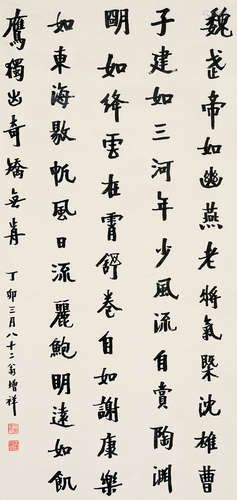 魏武帝如幽燕老將氣槩沈雄曹
子建如三河年少風流自賞陶淵
明如絳雲在霄舒卷自如謝康樂
如東海颺帆風日流麗鮑明遠如飢
鷹獨出奇矯無前
丁卯三月八十二翁增祥